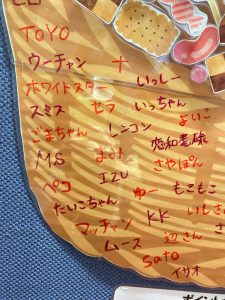 TOYO
ウーチャン ナ いっしー
ホワイトスター
スミス セフ いっちゃん
ごまちゃん レンコン よいこ
MS まめ
ペコ IZU さやぽん
たいこちゃん ゆー もこもこ
マッチャン KK いしさん
ムース 辺さん さ
Sato
イサオ
ポイント